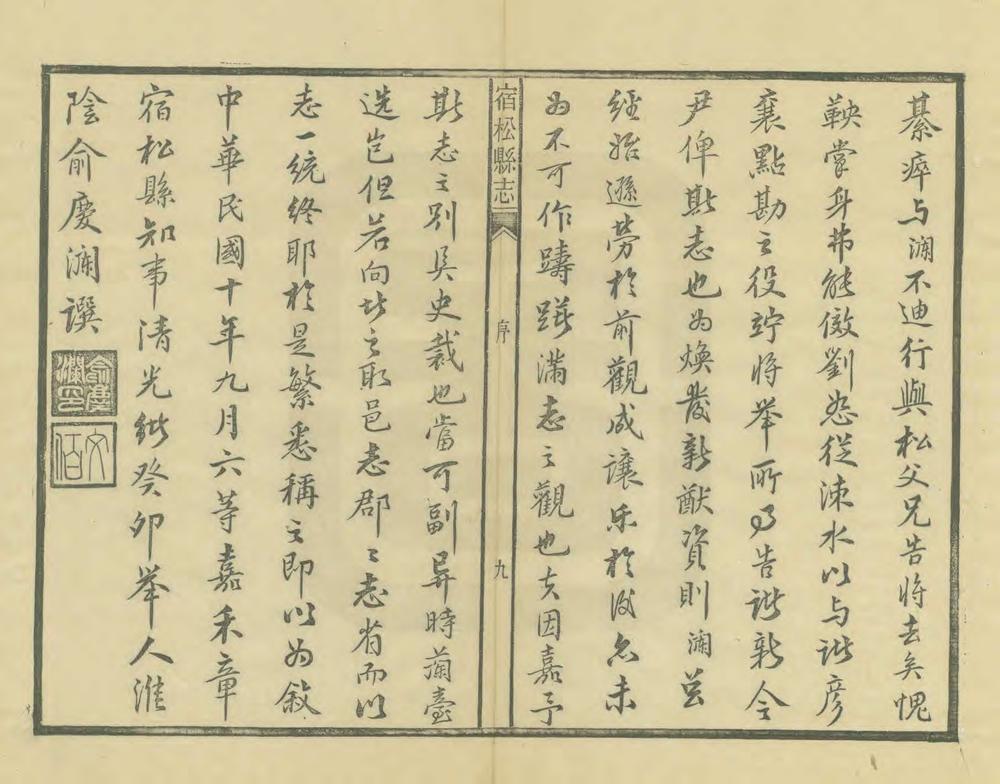 綦瘁与瀾不迪行與松父兄告將去矣愧
鞅掌身弗能倣劉恕從涑水以与諸彦
襄點勘之役竚將举所曰告諸新令
尹俾斯志也为煥發新猷資則瀾茲
經始遜勞於前觀成讓乐於後亦未
为不可作躊躇滿志之觀也夫因嘉予
宿松縣志
序
九
斯志之別具史裁也當可副异時蘭臺
选豈但若向比之取邑志郡〻志省而以
志一统终耶於是繁悉稱之即以为敘
中華民國十年九月六等嘉禾章
宿松縣知事清光緒癸卯举人淮
陰俞慶瀾譔
俞慶瀾印
文佰